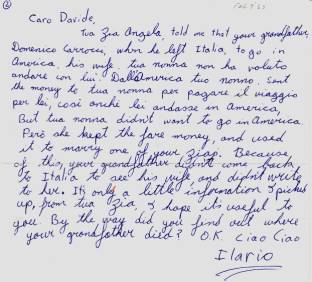 ②
Caro Davide,
Tua Zia Angela, told me that your grandfather,
Domenico Carrocci, when he left Italia, to go in
America, his wife, tua nonna non ha voluto
andare con lui. Dall'America tuo nonno, sent
the money to tua nonna per pagare il viaggio
per lei, cosi anche lei andasse in America,
But tua nonna didn't want to go in America.
Però she kept the fare money, and used
it to marry one of your zias. Because,
of this, your grandfather didn't come back
to Italia to see his wife and didn't write
to her. It's only a little information I picked
up, from tua Zia, I hope it's useful to
you. By the way did you find out where
your grandfather died? O.K. Ciao Ciao
Ilario